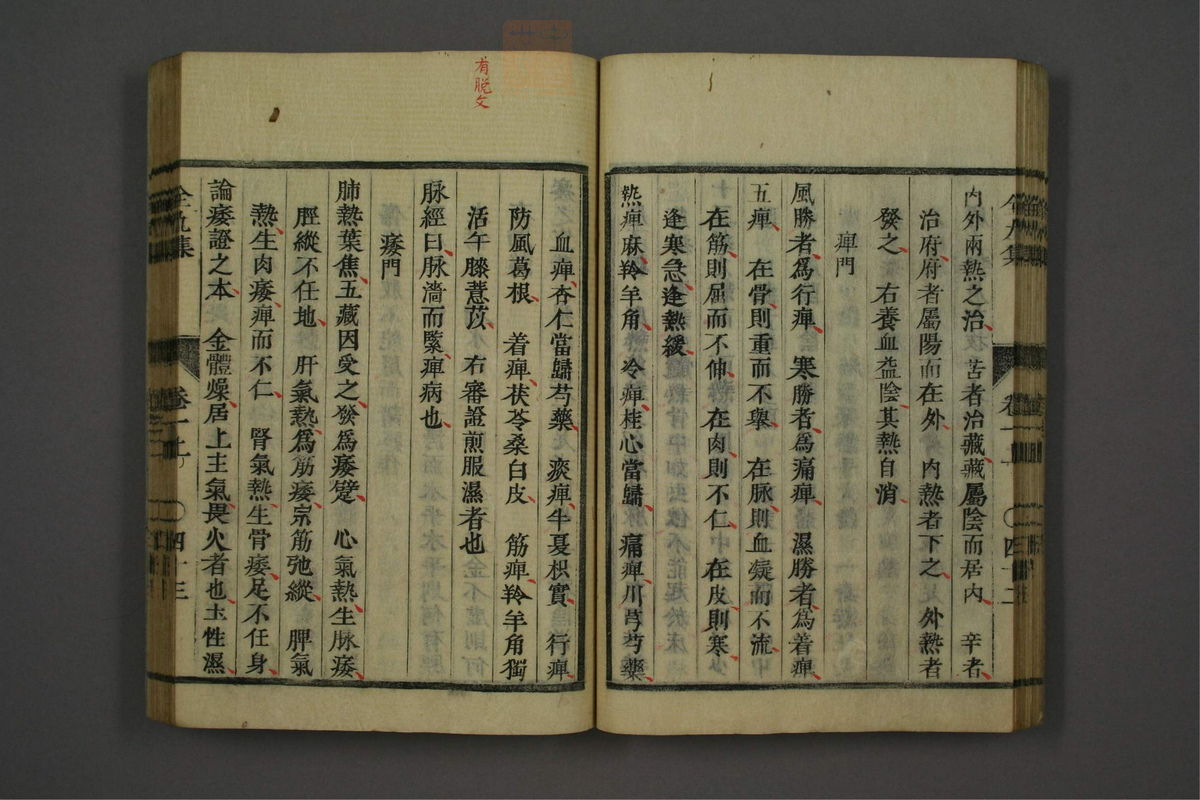 内外兩熱之治 苦者治藏藏屬陰而居內 辛者
治府府者屬陽而在外 內熱者下之 外熱者
發之 右養血益陰其熱自消
痺門
風勝者爲行痺 寒勝者爲痛痺 濕勝者爲着痺
五痺 在骨則重而不舉 在脉則血凝而不流
在筋則屈而不伸 在肉則不仁 在皮則寒
逢寒急逢熱緩
熱痺麻羚羊角 冷痺桂心當歸 痛痺川芎芍藥
血痺杏仁當歸芍藥 痰痺牛蒡枳實 行痺
防風葛根 着痺茯苓桑白皮 筋痺羚羊角獨
活午膝薏苡 右審證煎服濕者也
脉經曰脉濇而緊痺病也
痿門
肺熱葉焦五藏因受之發爲痿躄 心氣熱生脉痿
脛縱不任地 肝氣熱爲筋痿宗筋弛縱 脾氣
熱生肉痿痺而不仁 腎氣熱生骨痿足不任身
論痿證之本 金體燥居上主氣畏火者也土性濕
有脫文
卷一上
四十三